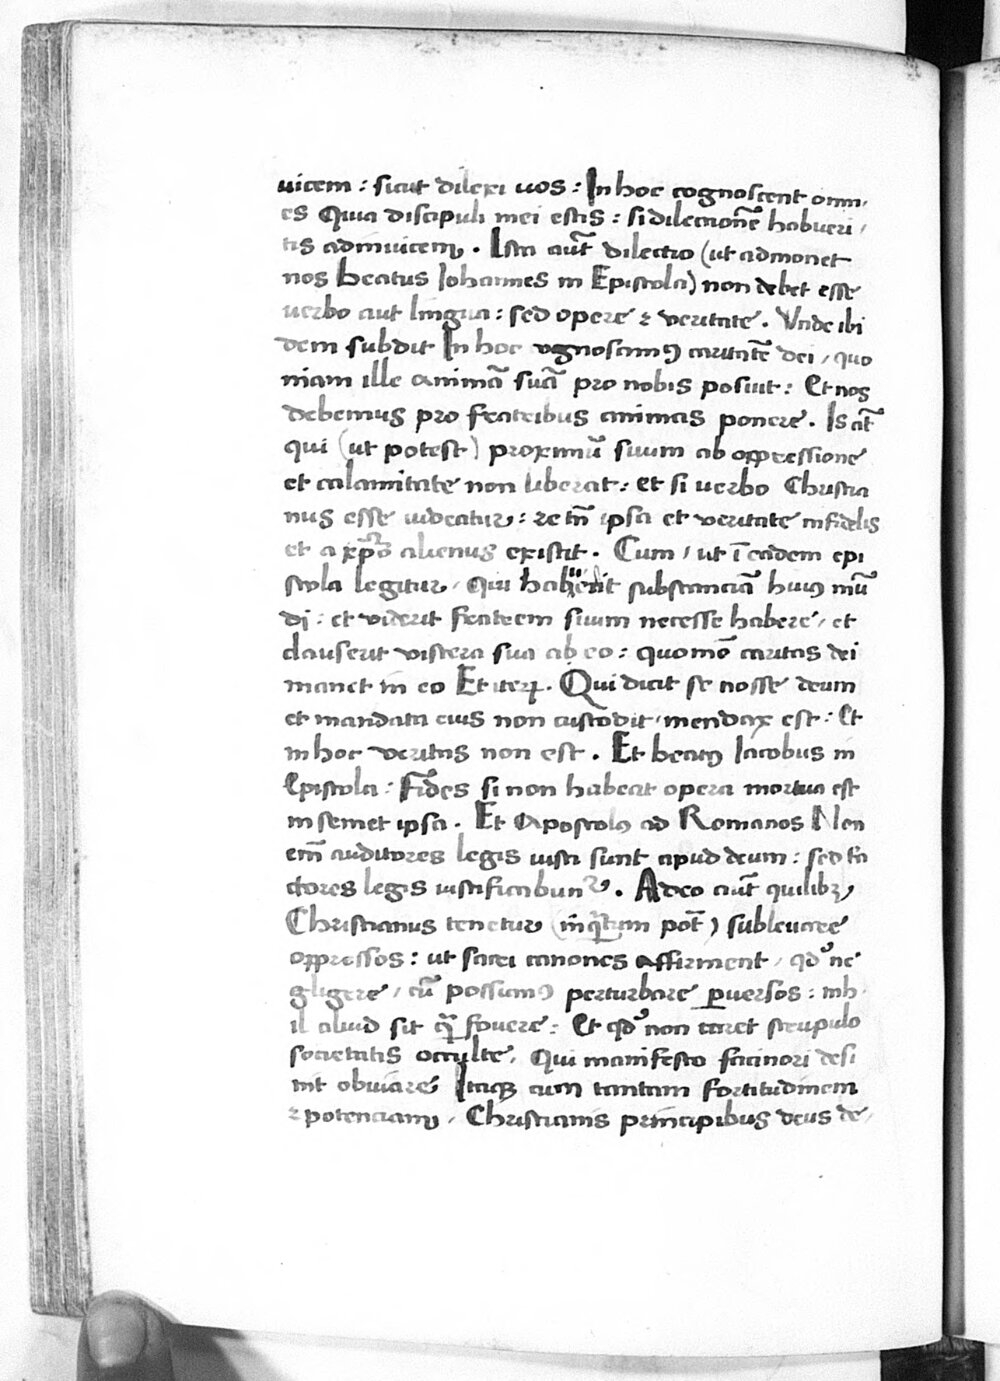 uicem : sicut dilexi uos : In hoc cognoscent omn,
es Quia discipuli mei estis : si dilectionē habueri,
tis adinuicem . Ista aut̄ dilectio (ut admonet
nos beatus Iohannes in Epistola) non debet esse
uerbo aut lingua : sed opere ⁊ veritate . Vnde ibi
dem subdit In hoc ognoscimꝰ caritatē dei , quo
niam ille animā suā pro nobis posuit : Et nos
debemus pro fratribus animas ponere . Is at̄
qui (ut potest) proximū suum ab oppressione
et calamitate non liberat : et si uerbo Christia
nus esse uideatur : re tn̄ ipsa et veritate infidelis
et a xp̄o alienus existit . Cum , ut ī eadem epi
stola legitur , Qui habuerit substanciā huiꝰ mū
dj : et viderit fratrem suum necesse habere , et
clauserit viscera sua ab eo : quomō caritas dei
manet in eo Et iteꝝ . Qui dicit se nosse deum
et mandata eius non custodit , mendax est : Et
in hoc veritas non est . Et beatꝰ Iacobus in
Epistola : Fides si non habeat opera mortua est
in semet ipsa . Et Apostolꝰ ad Romanos Non
em̄ auditores legis iusti sunt apud deum : sed fa
ctores legis iustificabunt᷑ . Adeo aut̄ quilibꝫ
Christianus tenetur (inqᷓtum pot̄) subleuare
oppressos : ut sacri canones affirment , qd' ne
gligere , cū possumꝰ perturbare ꝑuersos : nih
il aliud sit qᷓ fouere : Et qd' non caret scrupulo
societatis occulte , Qui manifesto facinori desi
nit obuiare Itaqꝫ cum tantam fortitudinem
⁊ potenciam , Christianis principibus deus de,